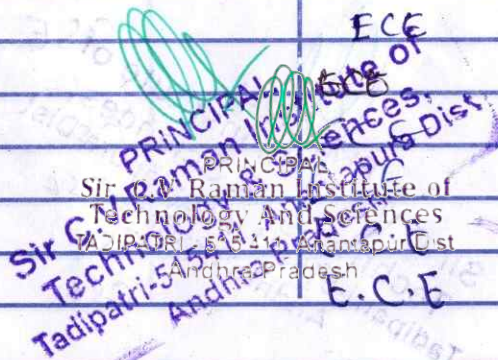 ECE
ECE
PRINCIPAL
Sir C.V. Raman Institute of
Technology & Sciences.
Tadipatri-515 411, Anantapura Dist
Andhra
PRINCIPAL
Sir C.V. Raman Institute of
Technology And Sciences
TADIPATRI - 515 411, Anantapur Dist
Andhra Pradesh
E.C.E
E.C.E